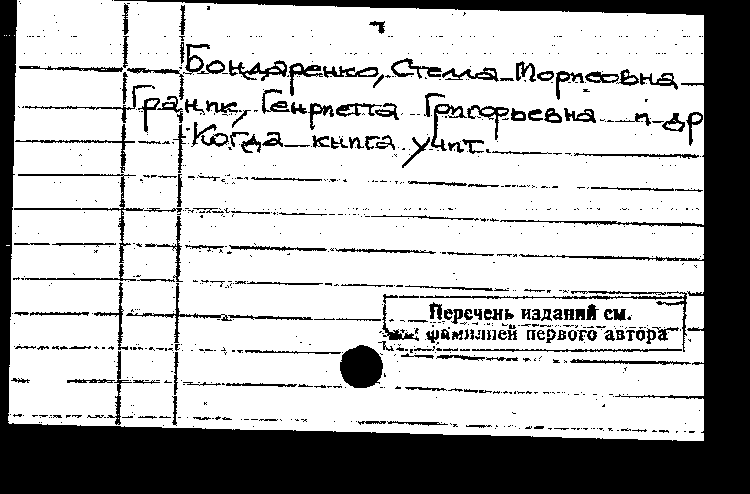 Бондаренко, Стелла Морисовна
Граник, Генриетта Григорьевна и др
Когда книга учит.
Перечень изданий см.
фамилией первого автора